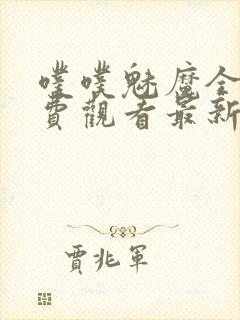 噗噗魅魔全
費觀看最新
賈兆軍